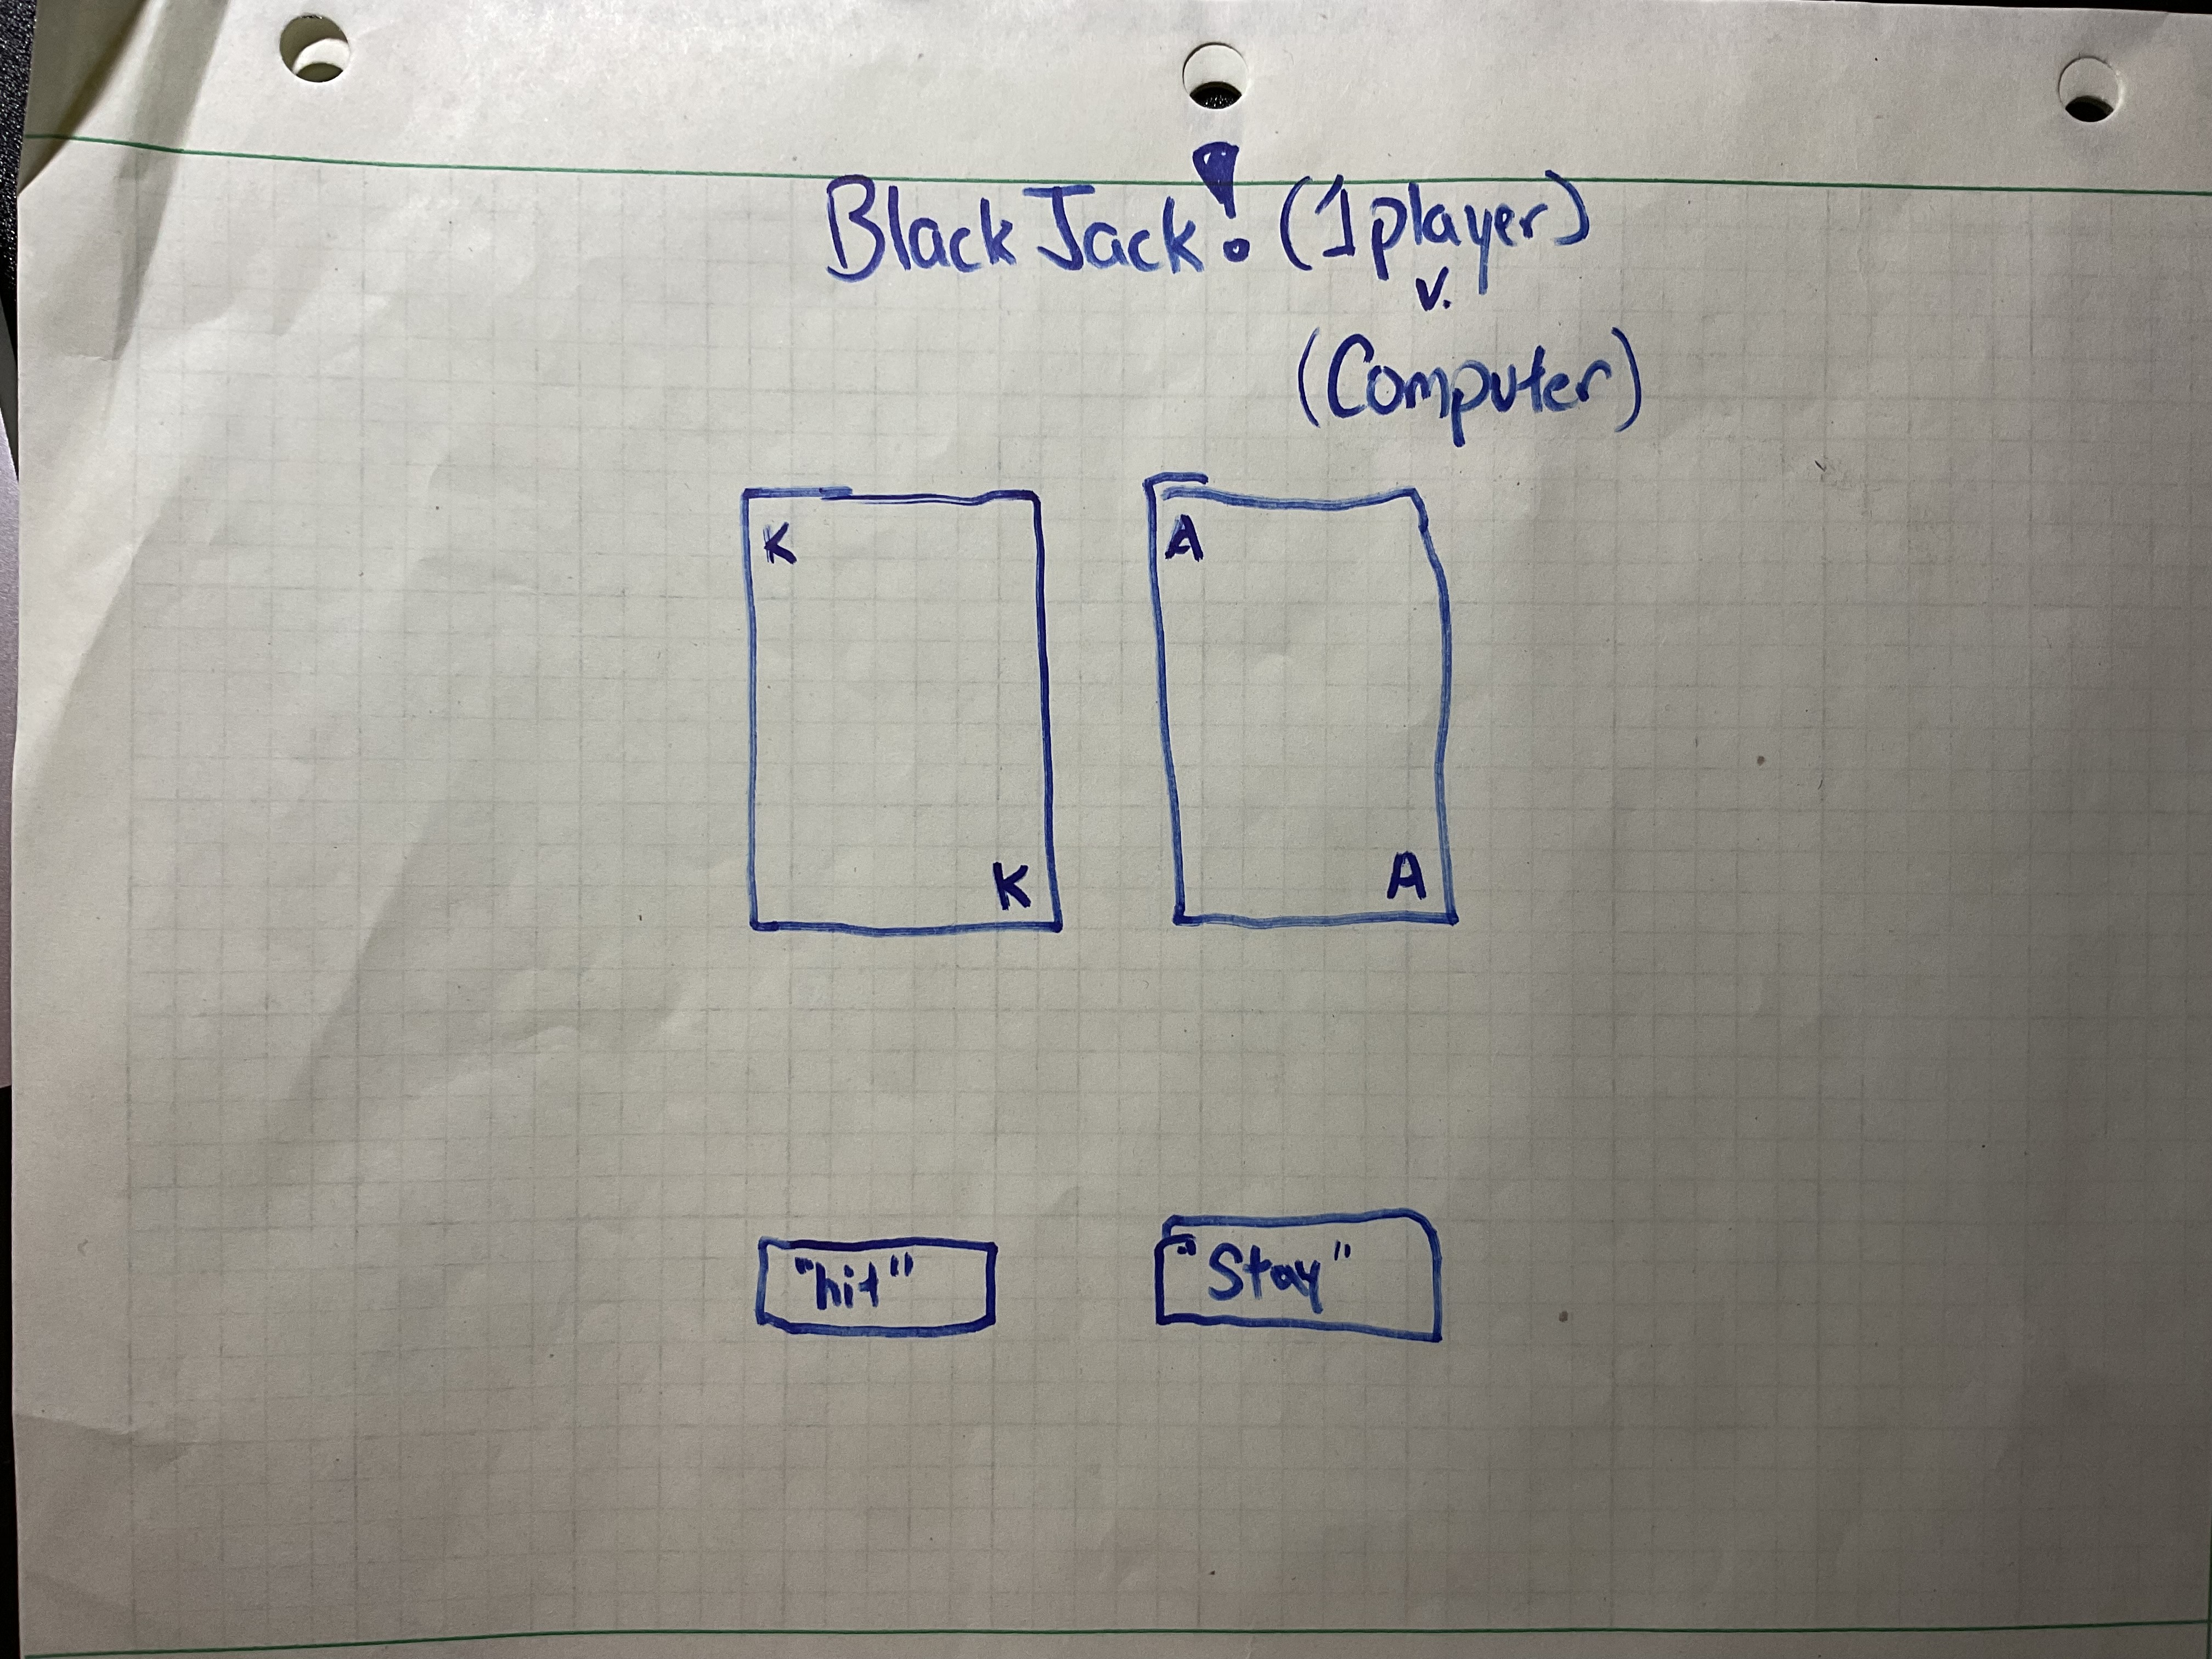 BlackJack! (1 player)
v.
(Computer)
K A
K A
"hit" "Stay"